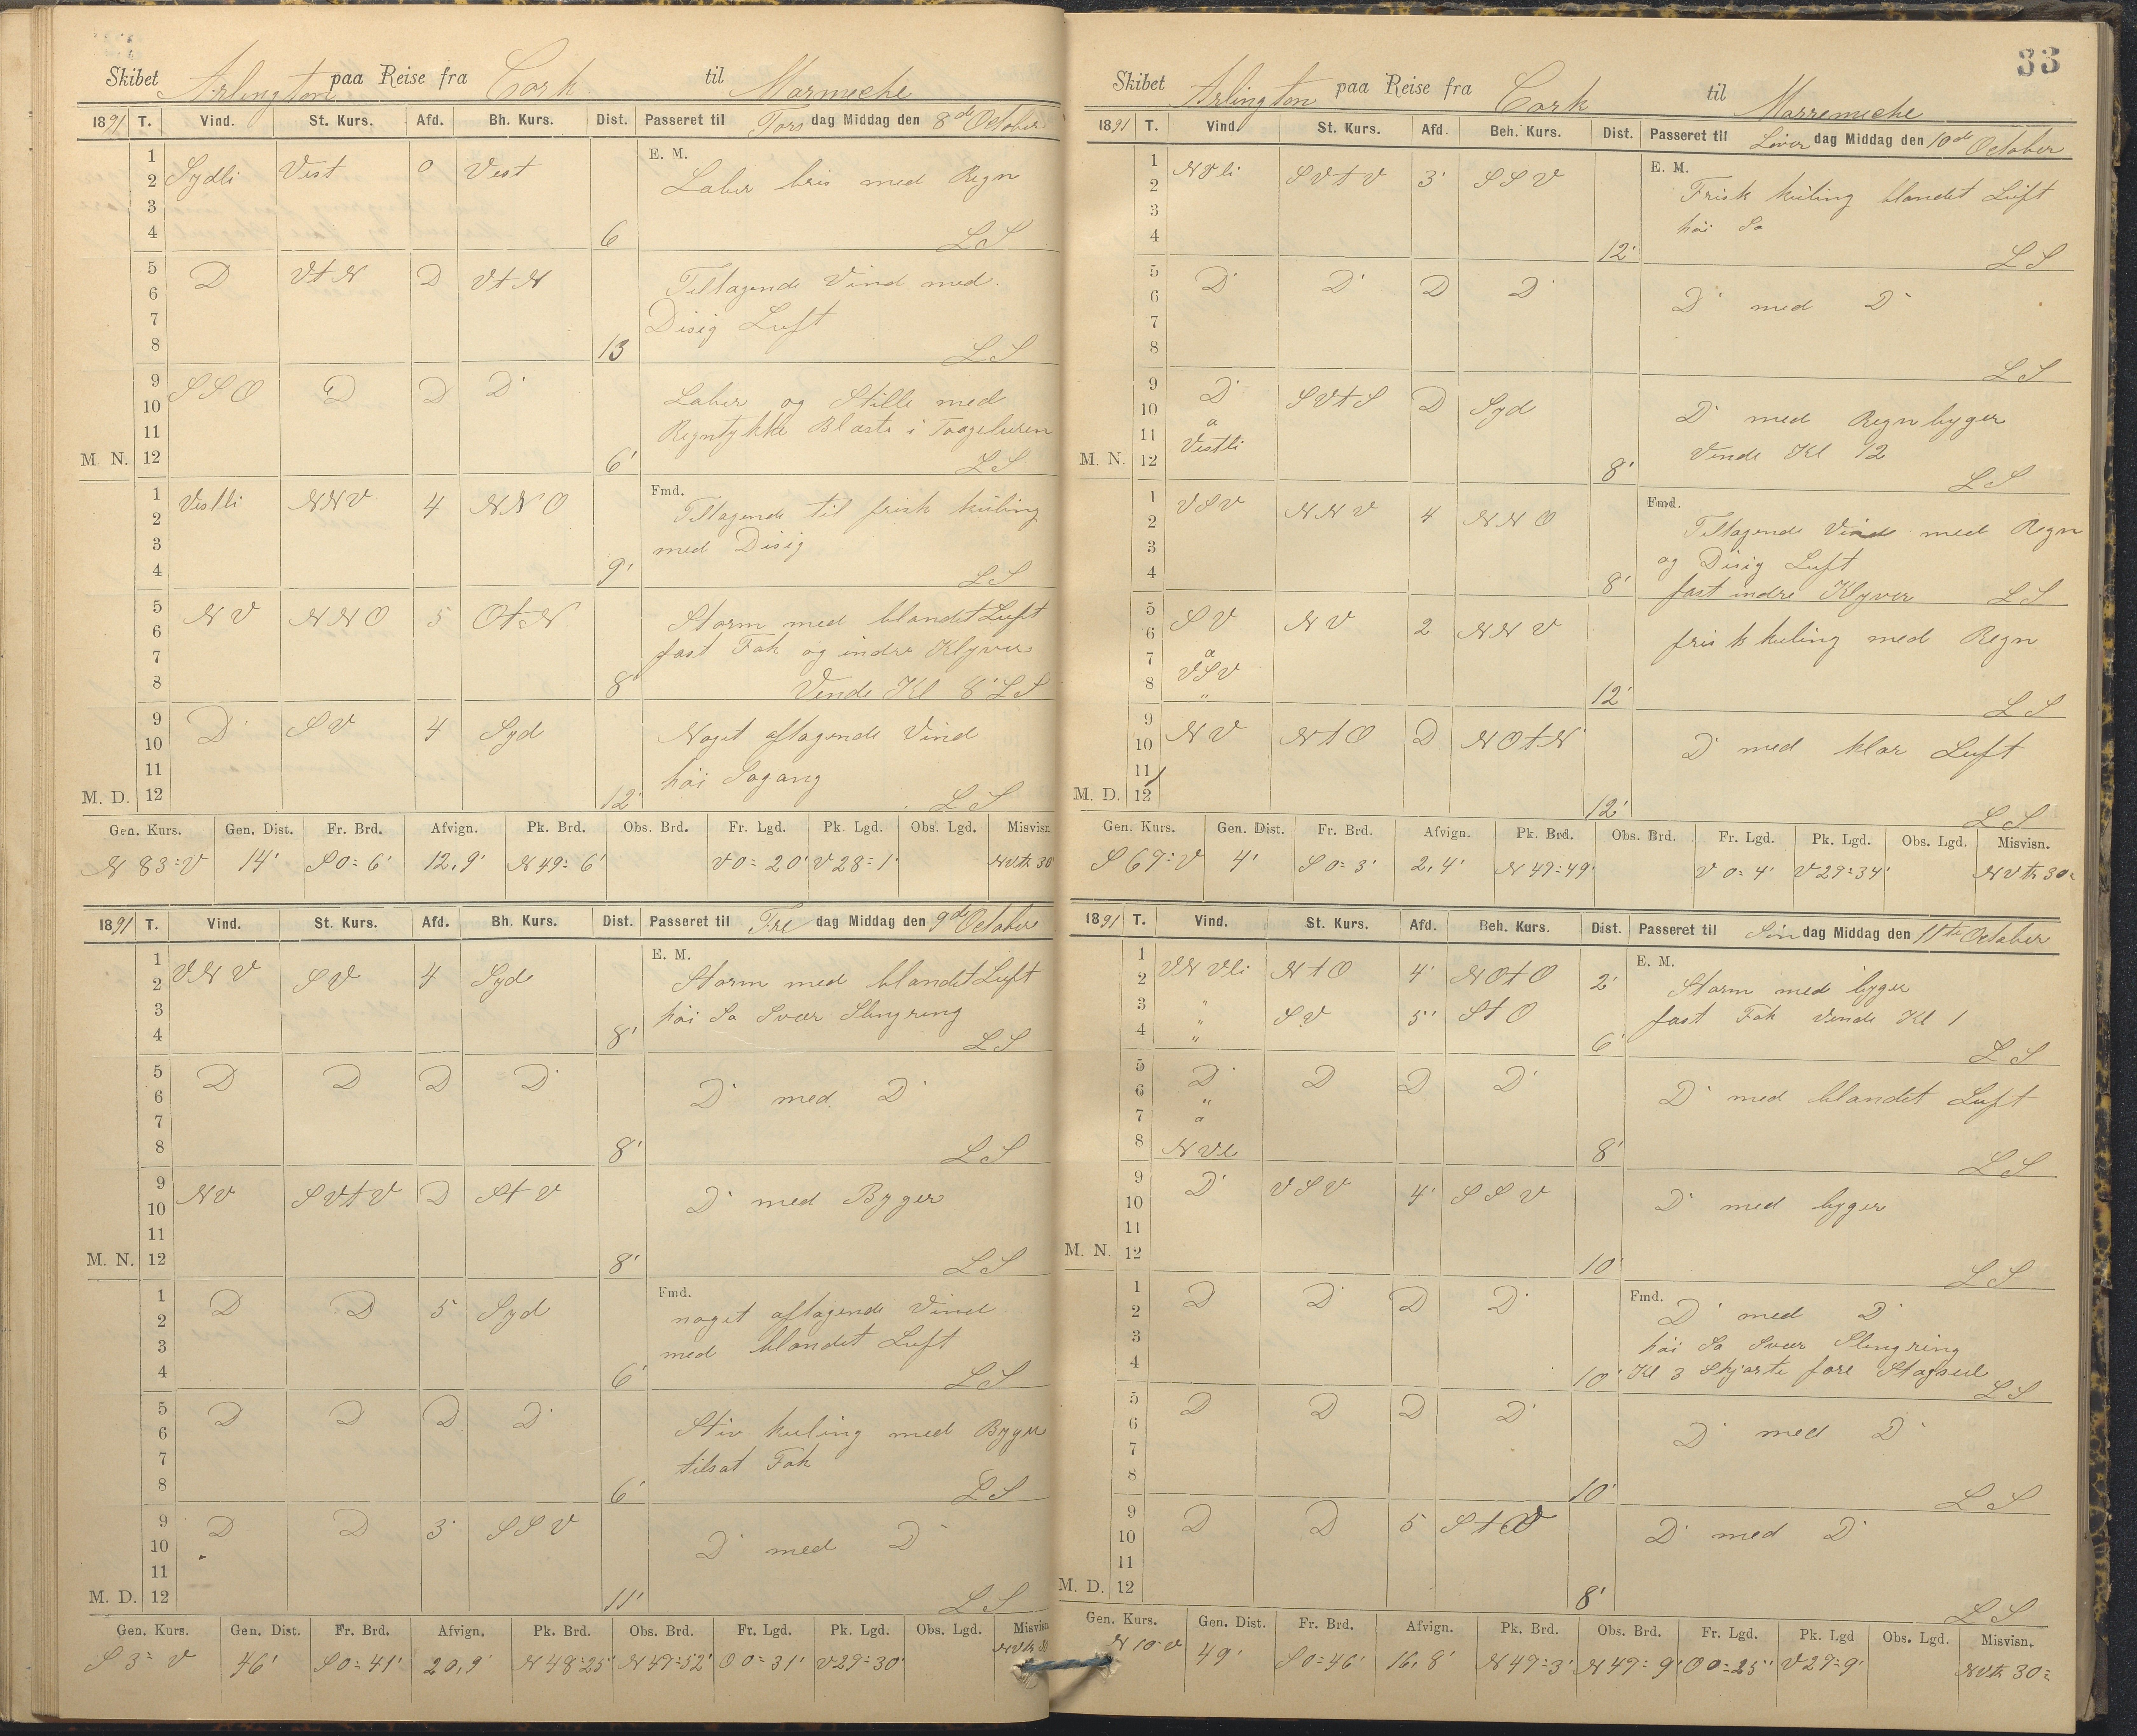 Skibet Arlington paa Reise fra Cork til Marmiche
1891 T. Vind. St. Kurs. Afd. Bh. Kurs. Dist. Passeret til Torsdag Middag den 8de October
E. M.
1 2 3 4 Sydli Vest 0 Vest 6 Laber bris med Regn
LS
5 6 7 8 D VtN D VtN 13 Tiltagende Vind med
Disig Luft
LS
9 10 11 12 SSO D D D 6' Laber og Stille med
Regntykke Blæste i Taageluren
M. N. LS
Fmd.
1 2 3 4 Vestli NNV 4 NNO 9' Tiltagende til frisk kuling
med Disig
LS
5 6 7 8 NV NNO 5 OtN 8' Storm med blandet Luft
fast Fok og indre Klyver
Vende Kl 8' LS
9 10 11 12 D SV 4 Syd 12' Noget aftagende Vind
høi Søgang
M. D. LS
Gen. Kurs. Gen. Dist. Fr. Brd. Afvign. Pk. Brd. Obs. Brd. Fr. Lgd. Pk. Lgd. Obs. Lgd. Misvisn.
N 83=V 14' S0=6' 12,9' N49=6' V0=20' V28=1' NVtr 30
1891 T. Vind. St. Kurs. Afd. Bh. Kurs. Dist. Passeret til Fredag Middag den 9de October
E. M.
1 2 3 4 VNV SV 4 Syd 8' Storm med blandet Luft
høi Sø Svær Slingring
LS
5 6 7 8 D D D D 8' D med D
LS
9 10 11 12 NV SVtV D StV 8' D med Byger
M. N. LS
Fmd.
1 2 3 4 D D 5 Syd 6' noget aftagende Vind
med blandet Luft
LS
5 6 7 8 D D D D 6' Stiv kuling med Byger
tilsat Fok
LS
9 10 11 12 D D 3' SSV 11' D med D
M. D. LS
Gen. Kurs. Gen. Dist. Fr. Brd. Afvign. Pk. Brd. Obs. Brd. Fr. Lgd. Pk. Lgd. Obs. Lgd. Misvisn.
S 3=V 46' S0=41' 20,9' N48=25' N49=52' O0=31' V29=30' NVtr 30
33
Skibet Arlington paa Reise fra Cork til Marremiche
1891 T. Vind. St. Kurs. Afd. Beh. Kurs. Dist. Passeret til Løverdag Middag den 10de October
E. M.
1 2 3 4 NVli SVtV 3' SSV 12' Frisk kuling blandet Luft
høi Sø
LS
5 6 7 8 D D D D D med D
LS
9 10 11 12 D a Vestli SVtS D Syd 8' D med Regnbyger
Vende Kl 12
M. N. LS
Fmd.
1 2 3 4 VSV NNV 4 NNO 8' Tiltagende Vind med Regn
og Disig Luft
fast indre Klyver LS
5 6 7 8 SV a VSV " NV 2 NNV 12' frisk kuling med Regn
LS
9 10 11 12 NV NtO D NOtN 12' D med klar Luft
M. D. LS
Gen. Kurs. Gen. Dist. Fr. Brd. Afvign. Pk. Brd. Obs. Brd. Fr. Lgd. Pk. Lgd. Obs. Lgd. Misvisn.
S 69=V 4' S0=3' 2,4' N49=49' V0=4' V29=34' NVtr 30=
1891 T. Vind. St. Kurs. Afd. Beh. Kurs. Dist. Passeret til Søndag Middag den 11te October
E. M.
1 2 VNVli NtO 4' NOtO 2' Storm med byger
3 4 " " " SV 5' StO 6' fast Fok Vende Kl 1
LS
5 6 7 8 D " a NVl D D D 8' D med blandet Luft
LS
9 10 11 12 D VSV 4' SSV 10' D med byger
M. N. LS
Fmd.
1 2 3 4 D D D D 10' D med D
høi Sø Svær Slingring
Kl 3 Skjørte fore Stagseil
LS
5 6 7 8 D D D D 10' D med D
LS
9 10 11 12 D D 5 StV 8' D med D
M. D. LS
Gen. Kurs. Gen. Dist. Fr. Brd. Afvign. Pk. Brd. Obs. Brd. Fr. Lgd. Pk. Lgd Obs. Lgd. Misvisn.
N 10=V 49' S0=46' 16,8' N49=3' N49=9' O0=25' V29=9' NVtr 30=